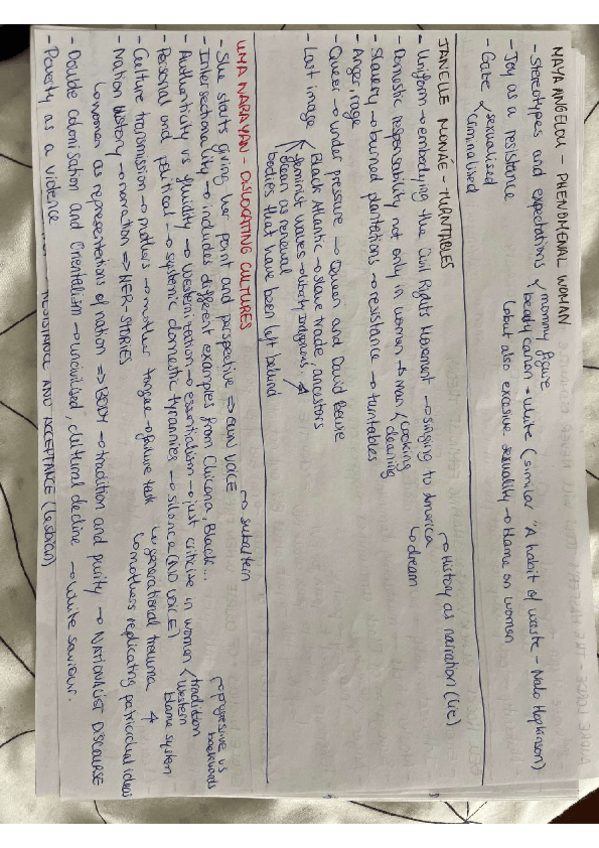 MAYA ANGELOU - PHENOMENAL WOMAN
- Stereotypes and expectations mommy figure
beauty canon → white (similar "A habit of waste - Nalo Hopkinson)
↳ but also excesive sexuality → blame on women
- Joy as a resistence
- Gaze sexualised
criminalised
JANELLE MONÁE - TURNTABLES
→ History as narration (lie)
- Uniform → embodying the Civil Rights Movement → singing to America
↳ dream
- Domestic responsability not only in women → man cooking
cleaning
- Slavery → burned plantations → resistance → turntables
- Anger, rage
- Queer → under pressure → Queen and David Bowie
- Last image Black Atlantic → slave trade, ancestors
feminist waves →
ocean as renewal
bodies that have been left behind
UMA NARAYAN - DISLOCATING CULTURES
→ subaltern
- She starts giving her point and perspective ⇒ OWN VOICE
- Intersectionality → includes different examples from Chicana, Black...
→ progressive vs backwards
- Authenticity vs fluidity → westernization → essentialism → just criticise in women tradition
western
- Personal and political → systemic domestic tyrannies → silence (NO VOICE) blame system
- Culture transmission → mothers → mother tongue → failure task ↳ generational trauma
↳ mothers replicating patriarchal ideas
- Nation history → narration ⇒ HER STORIES
↳ women as representations of nation ⇒ BODY → tradition and purity → NATIONALIST DISCOURSE
- Double colonisation and Orientalism → uncivilised, cultural decline → white saviour.
- Poverty as a violence
AND ACCEPTANCE (lesbian)